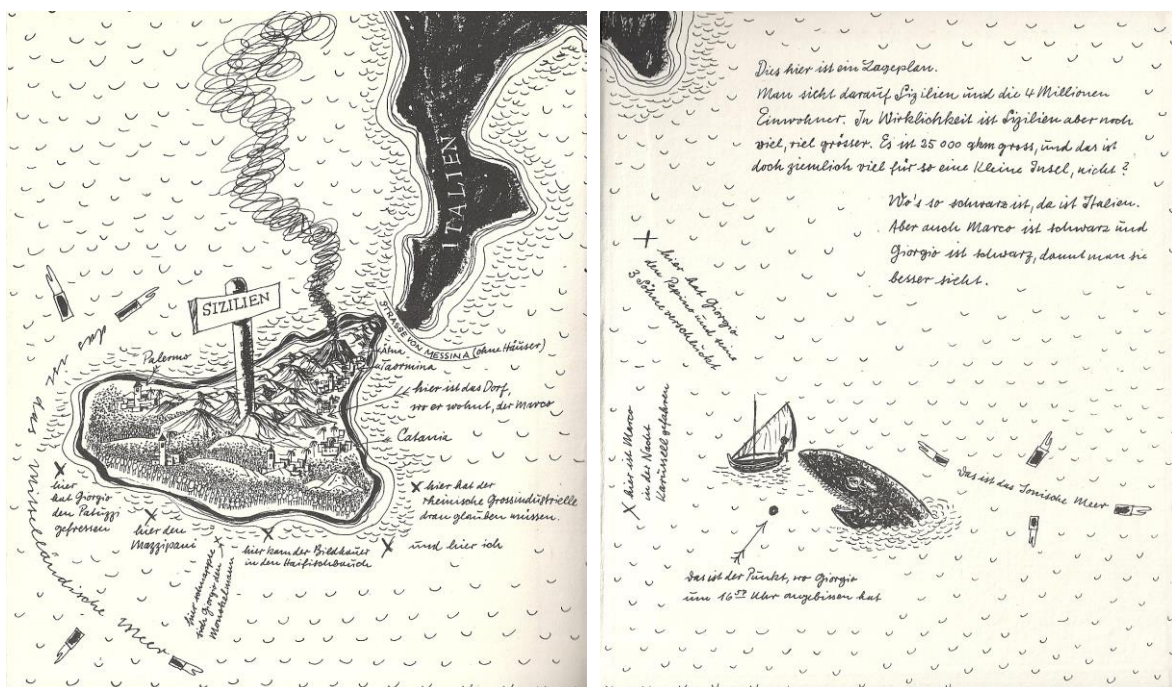 ITALIEN
SIZILIEN
STRASSE VON MESSINA (ohne Häuser)
Ätna
Taormina
Palermo
hier ist das Dorf,
wo er wohnt, der Marco
Catania
das ist das mittelländische Meer
hier
hat Giorgio
den Patuzzi
gefressen
hier den
Mazzipani
hier schnappte
sich Giorgio den
hier kam der Bildhauer
in den Haifischbauch
hier hat der
rheinische Grossindustrielle
dran glauben müssen.
und hier ich
Dies hier ist ein Lageplan.
Man sieht darauf Sizilien und die 4 Millionen
Einwohner. In Wirklichkeit ist Sizilien aber noch
viel, viel grösser. Es ist 25 000 qkm gross, und das ist
doch ziemlich viel für so eine kleine Insel, nicht?
Wo's so schwarz ist, da ist Italien.
Aber auch Marco ist schwarz und
Giorgio ist schwarz, damit man sie
besser sieht.
hier hat Giorgio
den Pepino und seine
3 Söhne verschluckt
hier ist Marco
in der Nacht
Karussell gefahren
das ist das Jonische Meer
das ist der Punkt, wo Giorgio
um 16 Uhr angebissen hat